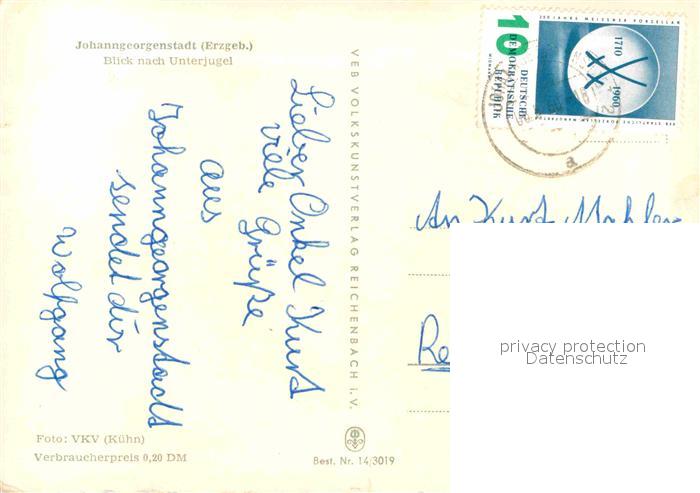 Johanngeorgenstadt (Erzgeb.)
Blick nach Unterjugel
Lieber Onkel Kurt
viele Grüße
aus
Johanngeorgenstadt
sendet dir
Wolfgang
Foto: VKV (Kühn)
Verbraucherpreis 0,20 DM
VEB VOLKSKUNSTVERLAG REICHENBACH i. V.
Best. Nr. 14/3019
250 JAHRE MEISSNER PORZELLAN
10
DEUTSCHE
DEMOKRATISCHE
REPUBLIK
1710
1960
a
An Kurt
privacy protection
Datenschutz